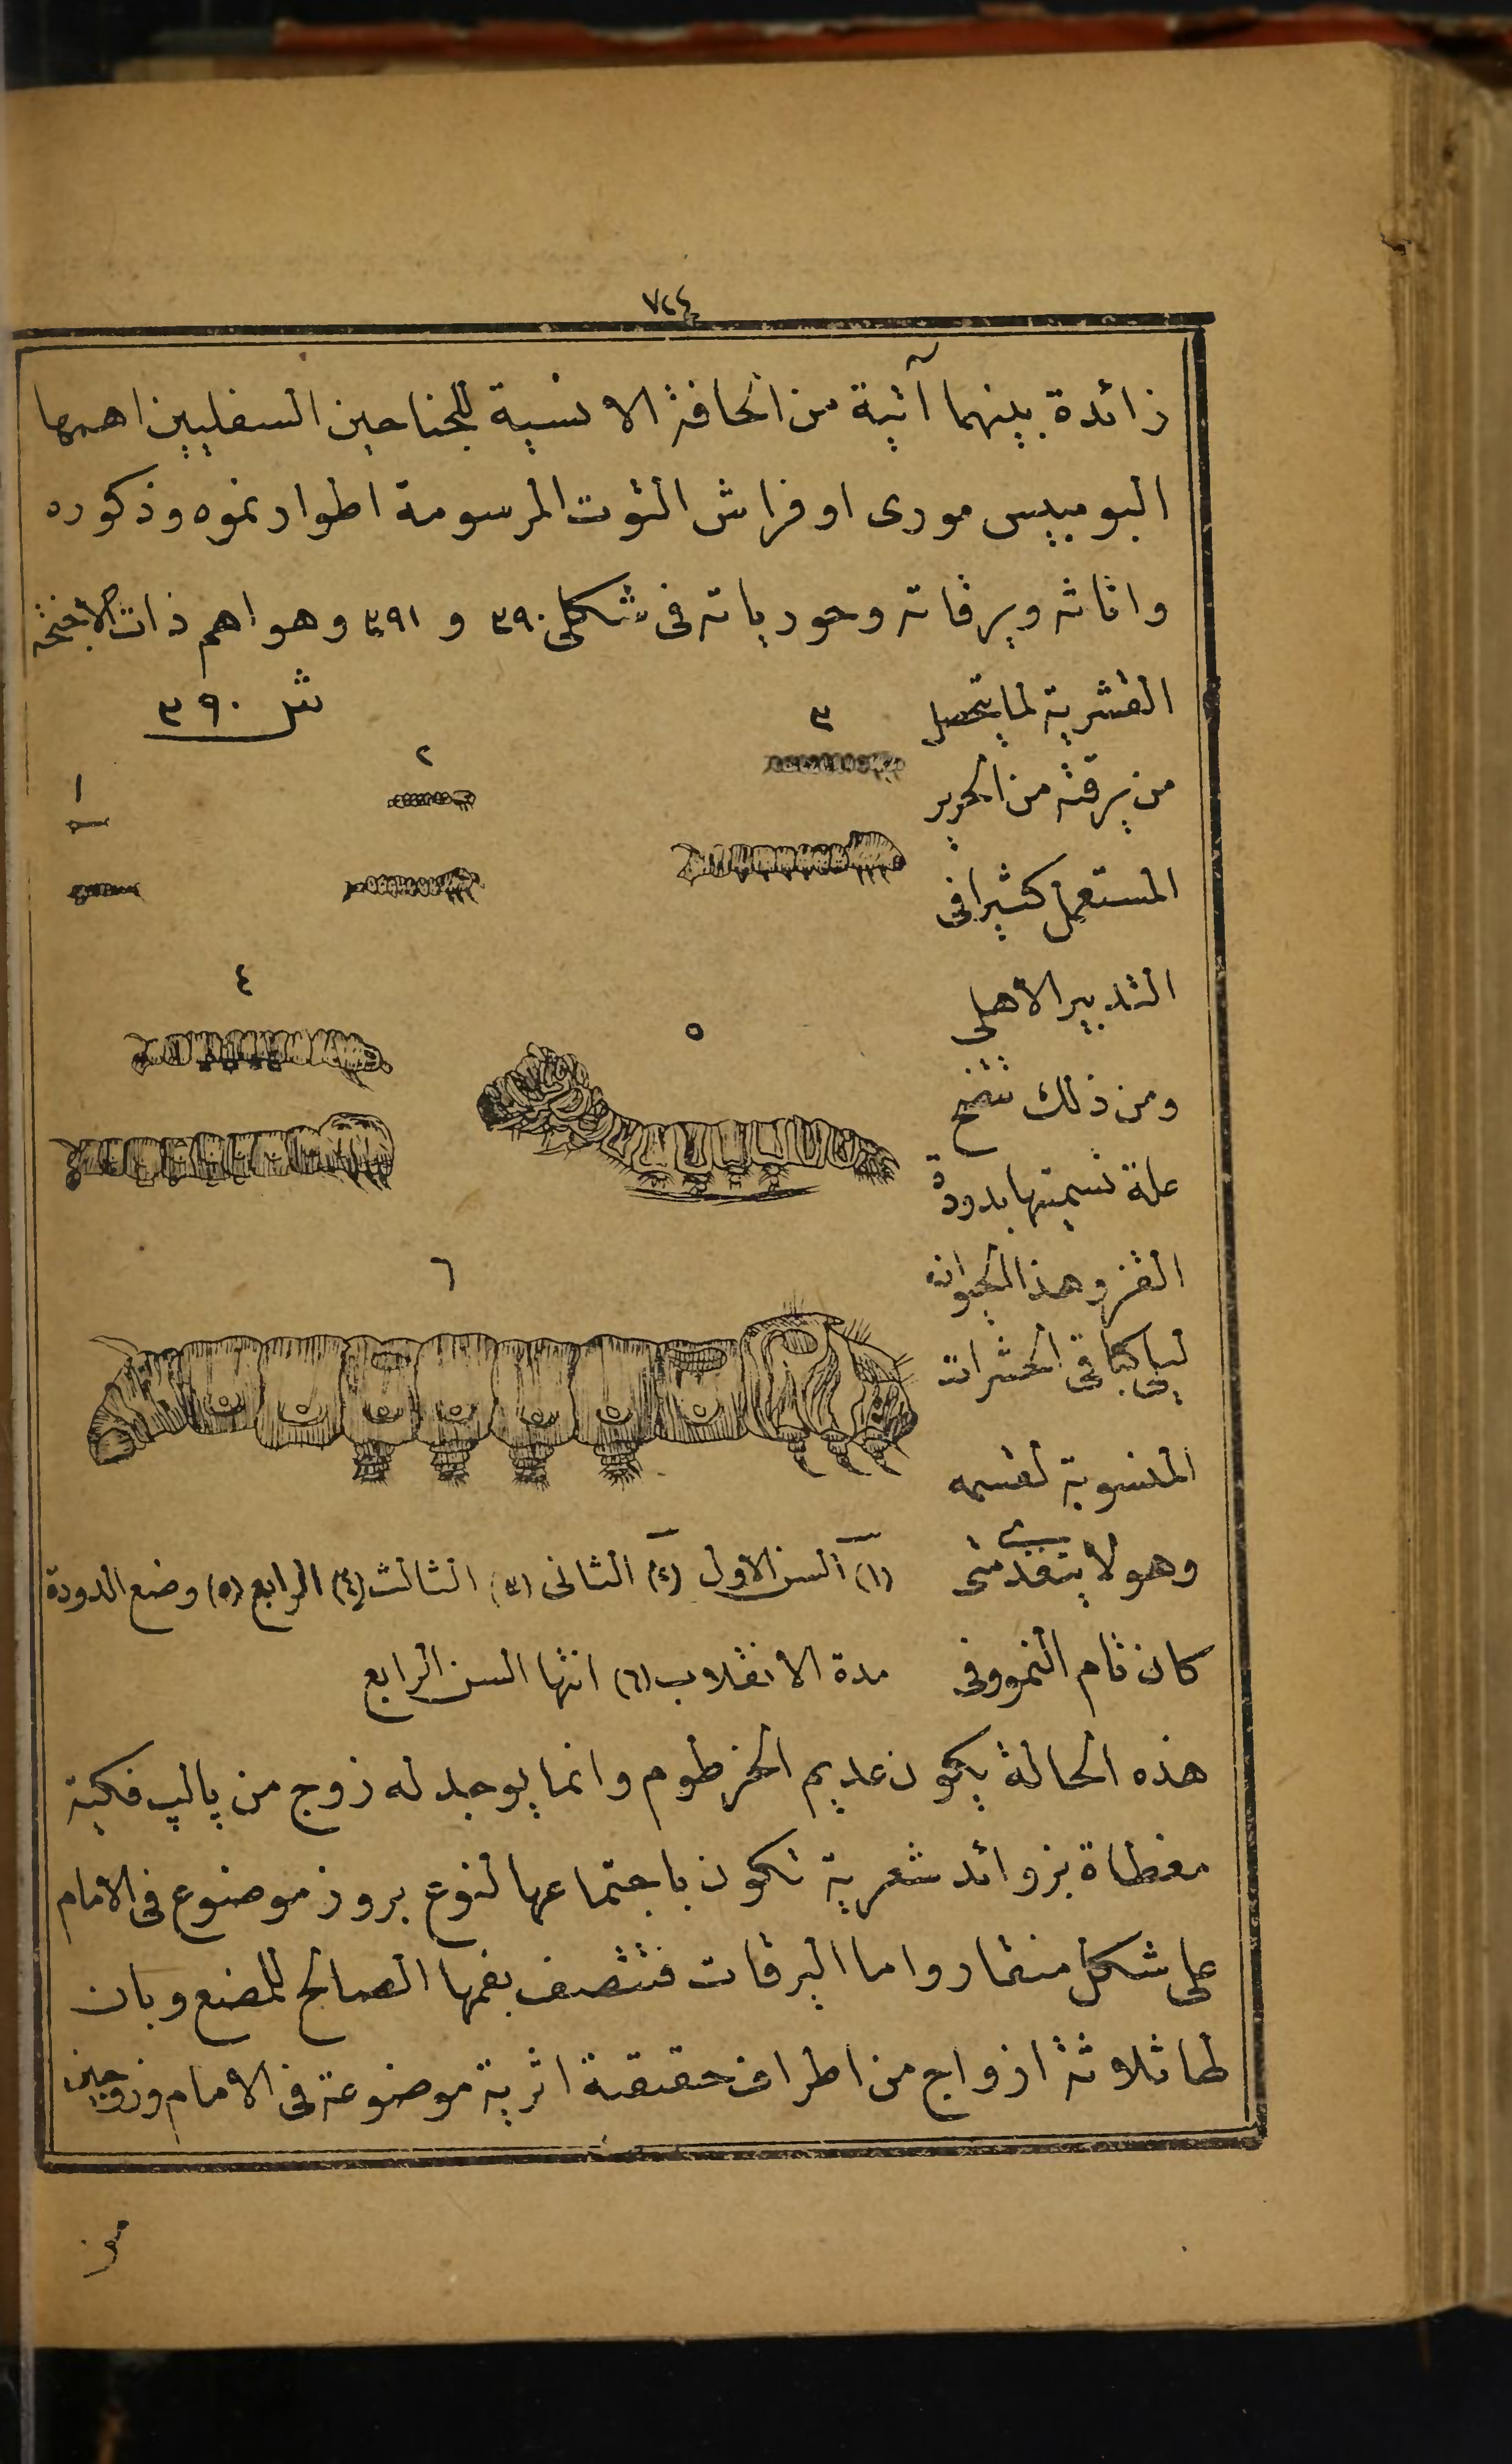 ٧٢٤
زائدة بينهما آتية من الحافة الانسية للجناحين السفليين اهمها
البومبيس مورى او فراش التوت المرسومة اطوار نموه وذكوره
واناثه ويرقاته وحورياته فى شكلى ٣٩٠ و ٣٩١ وهو اهم ذات الاجنحة
القشرية لما يتحصل
من يرقته من الحرير
المستعمل كثيرا فى
التدبير الاهلى
ومن ذلك تتضح
علة تسميتها بدودة
القز وهذا الحيوان
ليس كباقى الحشرات
المنسوبة لقسمه
وهو لا يتغذى متى
كان تام النمو وفى
شكل ٣٩٠
١
٢
٣
٤
٥
٦
(١) السن الاول (٢) الثانى (٣) الثالث (٤) الرابع (٥) وضع الدودة
مدة الانقلاب (٦) انتها السن الرابع
هذه الحالة يكون عديم الخرطوم وانما يوجد له زوج من پالپ فكية
مغطاة بزوائد شعرية تكون باجتماعها لنوع بروز موضوع فى الامام
على شكل منقار واما اليرقات فتتصف بفمها الصالح للمضغ وبان
لها ثلاثة ازواج من اطراف حقيقية اثرية موضوعة فى الامام وزوجين